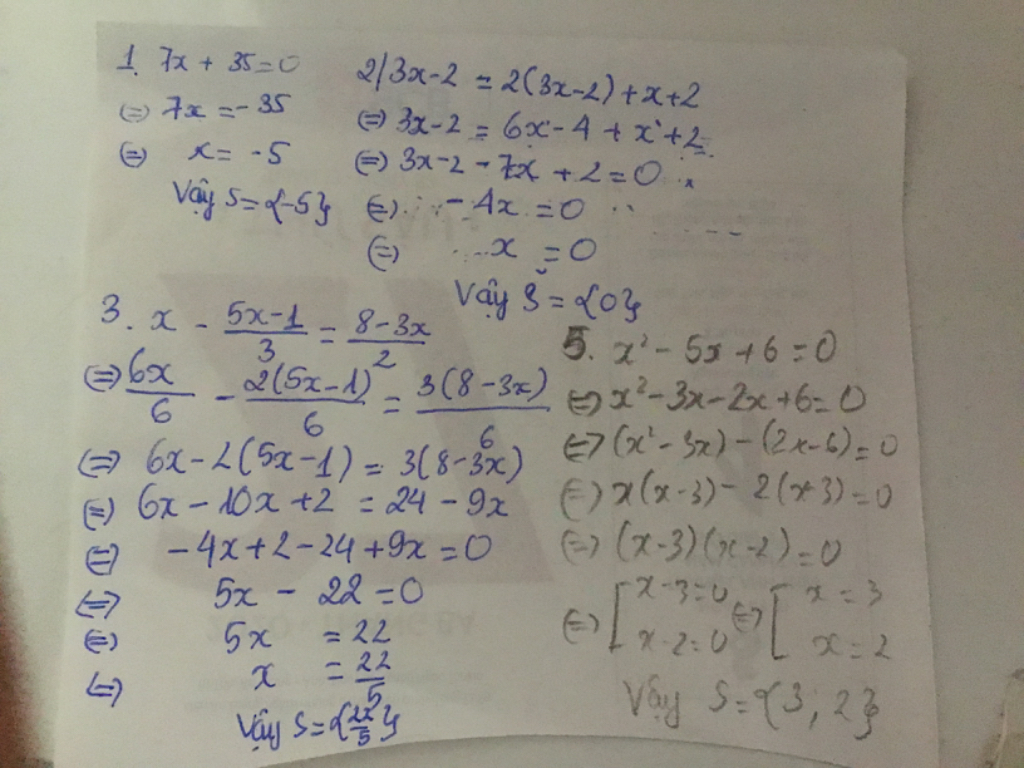 1. 7x + 35 = 0
(=) 7x = - 35
(=) x = -5
Vậy S = {-5}
2/ 3x-2 = 2(3x-2) + x+2
(=) 3x-2 = 6x - 4 + x + 2
(=) 3x-2 - 7x + 2 = 0
(=) - 4x = 0
(=) x = 0
Vậy S = {0}
3. x - \frac{5x-1}{3} = \frac{8-3x}{2}
(=) \frac{6x}{6} - \frac{2(5x-1)}{6} = \frac{3(8-3x)}{6}
(=) 6x - 2(5x-1) = 3(8-3x)
(=) 6x - 10x + 2 = 24 - 9x
(=) -4x + 2 - 24 + 9x = 0
(=) 5x - 22 = 0
(=) 5x = 22
(=) x = \frac{22}{5}
Vậy S = {\frac{22}{5}}
5. x² - 5x + 6 = 0
(=) x² - 3x - 2x + 6 = 0
(=) (x² - 3x) - (2x - 6) = 0
(=) x(x-3) - 2(x-3) = 0
(=) (x-3)(x-2) = 0
(=) [ x-3=0 (=) [ x = 3
x-2=0 x = 2
Vậy S = {3; 2}